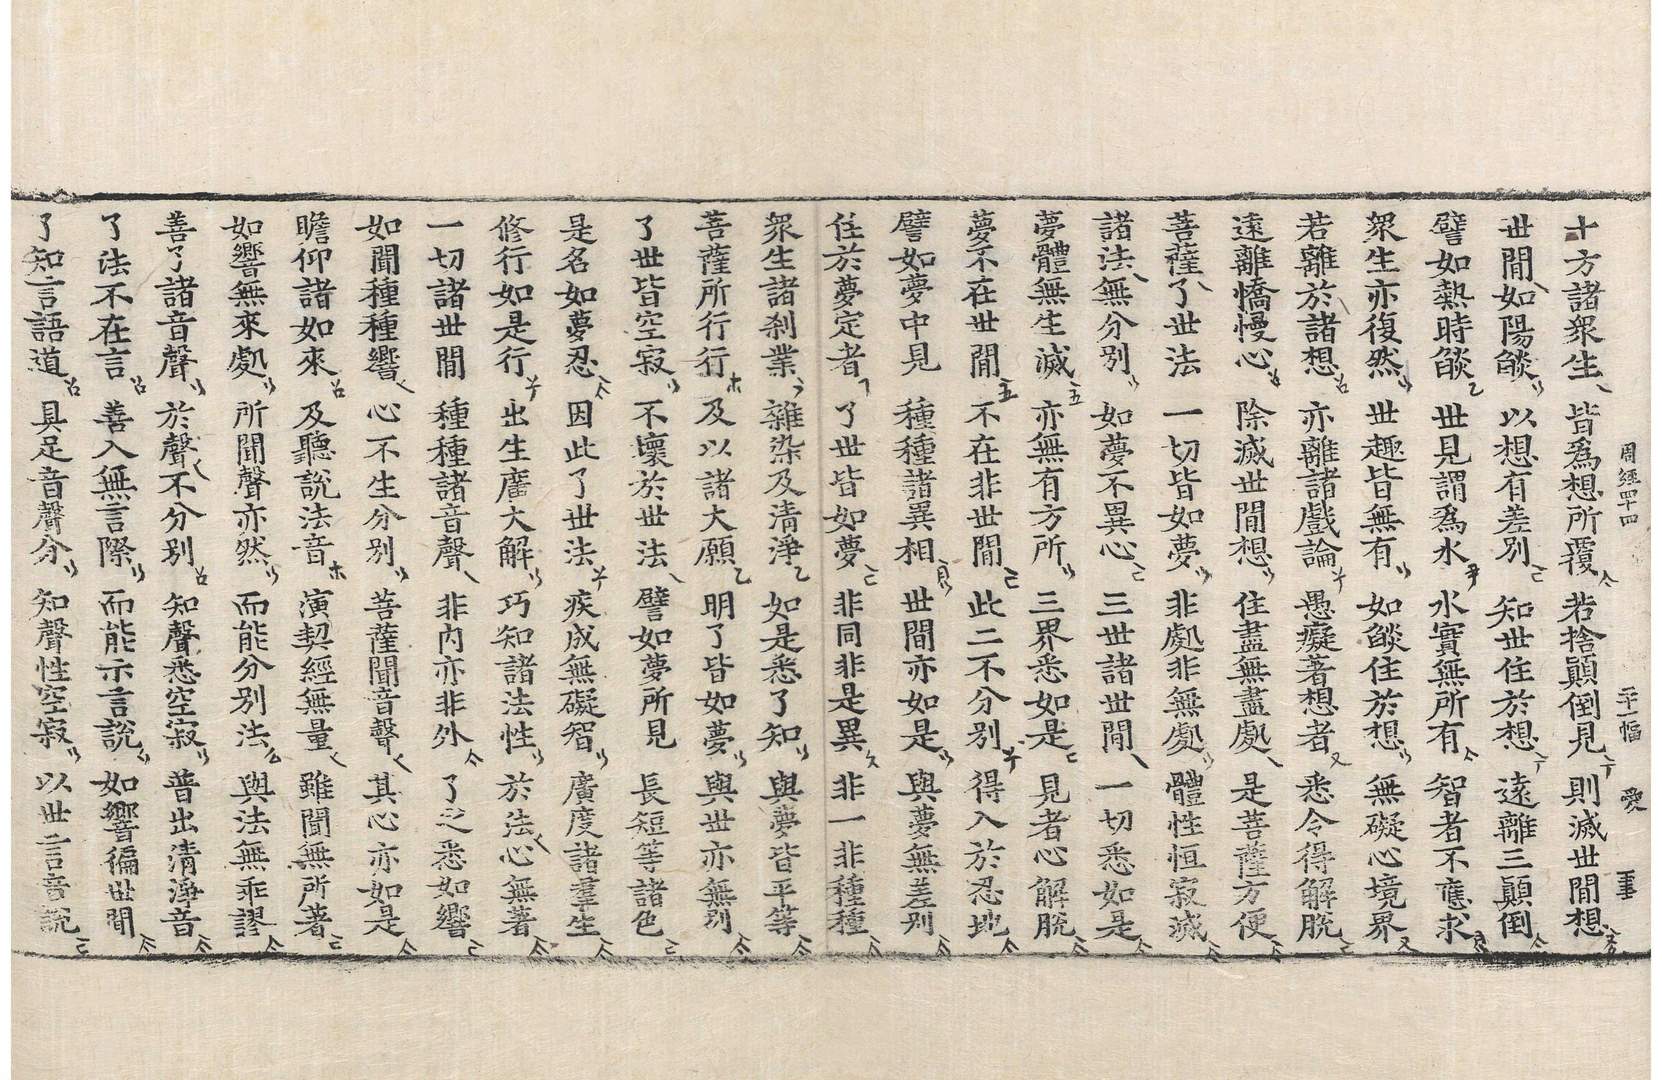 周經四十四 二十一幅 愛 玉
十方諸衆生 皆爲想所覆 若捨顚倒見 則滅世間想
世間如陽燄 以想有差別 知世住於想 遠離三顚倒
譬如熱時燄 世見謂爲水 水實無所有 智者不應求
衆生亦復然 世趣皆無有 如燄住於想 無礙心境界
若離於諸想 亦離諸戲論 愚癡著想者 悉令得解脫
遠離憍慢心 除滅世間想 住盡無盡處 是菩薩方便
菩薩了世法 一切皆如夢 非處非無處 體性恒寂滅
諸法無分別 如夢不異心 三世諸世間 一切悉如是
夢體無生滅 亦無有方所 三界悉如是 見者心解脫
夢不在世間 不在非世間 此二不分別 得入於忍地
譬如夢中見 種種諸異相 世間亦如是 與夢無差別
住於夢定者 了世皆如夢 非同非是異 非一非種種
衆生諸刹業 雜染及清淨 如是悉了知 與夢皆平等
菩薩所行行 及以諸大願 明了皆如夢 與世亦無別
了世皆空寂 不壞於世法 譬如夢所見 長短等諸色
是名如夢忍 因此了世法 疾成無礙智 廣度諸羣生
修行如是行 出生廣大解 巧知諸法性 於法心無著
一切諸世間 種種諸音聲 非內亦非外 了之悉如響
如聞種種響 心不生分別 菩薩聞音聲 其心亦如是
瞻仰諸如來 及聽說法音 演契經無量 雖聞無所著
如響無來處 所聞聲亦然 而能分別法 與法無乖謬
善了諸音聲 於聲不分別 知聲悉空寂 普出清淨音
了法不在言 善入無言際 而能示言說 如響徧世間
了知言語道 具足音聲分 知聲性空寂 以世言音說